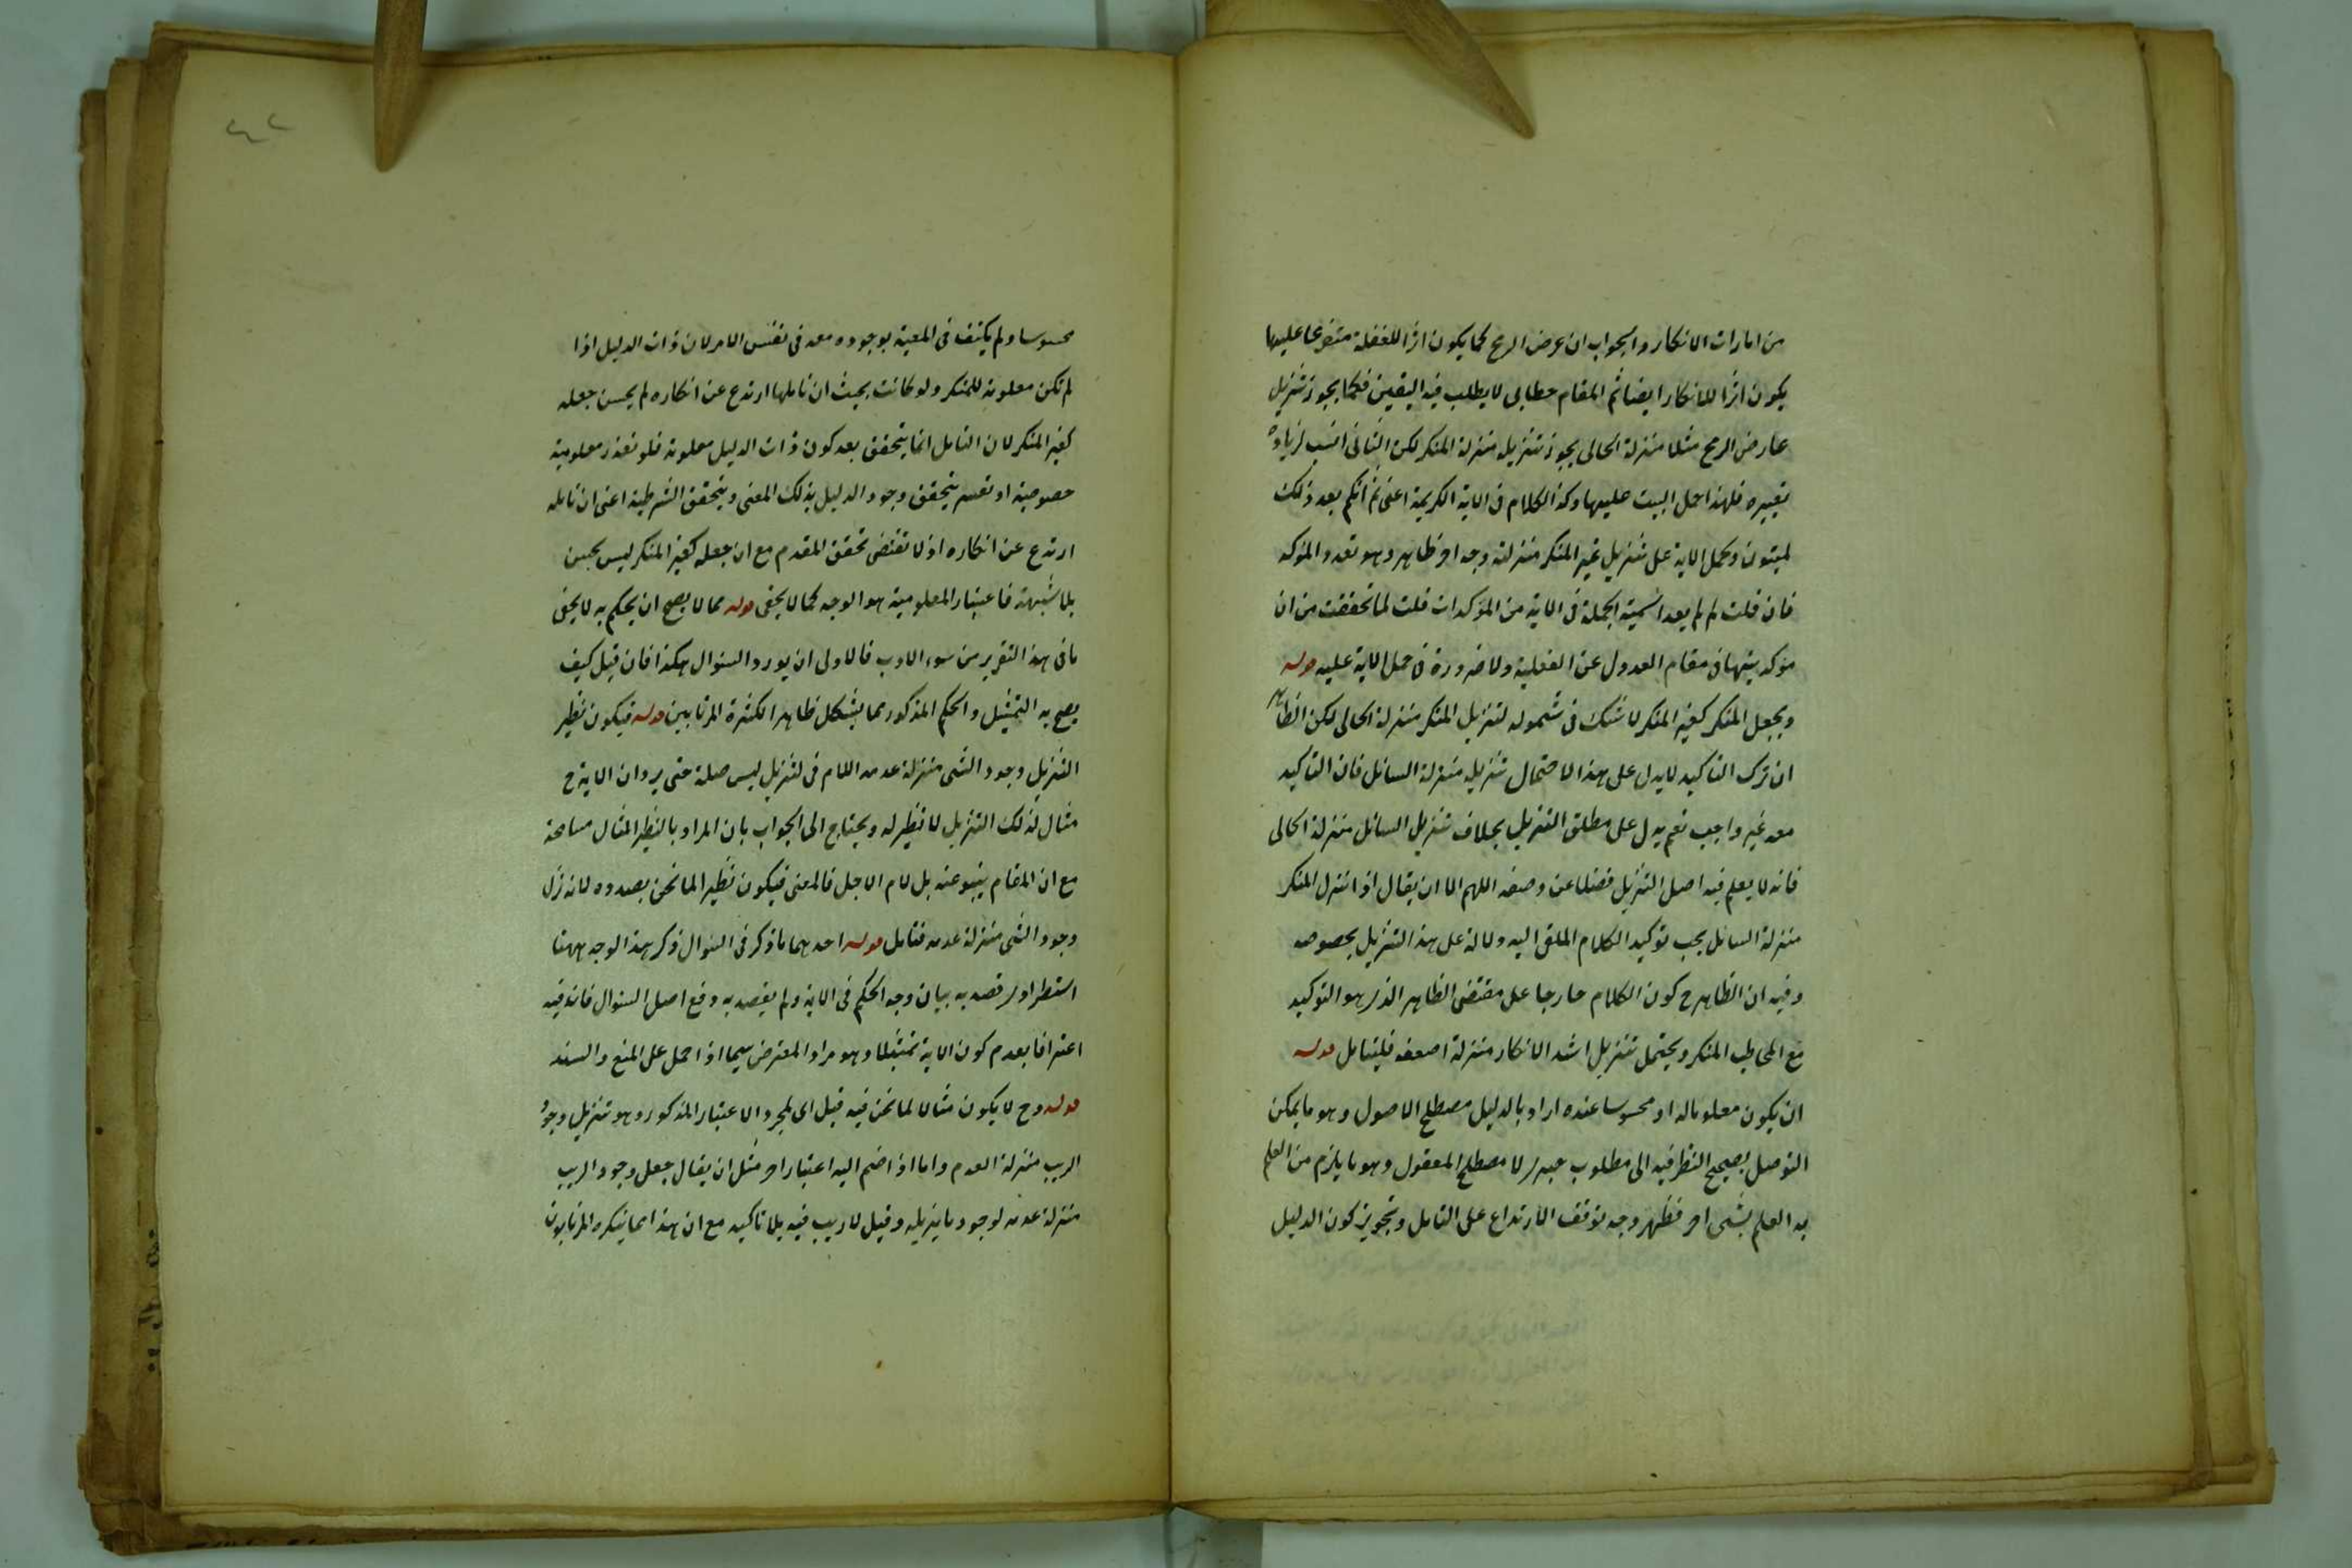 من امارات الانكار والجواب ان عرض الرمح كما يكون اثرا للغفلة متفرعا عليها
يكون اثرا للانكار ايضا ثم المقام خطابى لا يطلب فيه اليقين فكما يجوز تنزيل
عارض الرمح مثلا منزلة الخالى يجوز تنزيله منزلة المنكر لكن الثانى انسب لزيادة
تعييره فلهذا حمل البيت عليها وكذا الكلام فى الاية الكريمة اعنى ثم انكم بعد ذلك
لميتون وحمل الاية على تنزيل غير المنكر منزلته وجه اخر ظاهر وهو تعدد المؤكد
فان قلت لم لم يعد اسمية الجملة فى الاية من المؤكدات قلت لما تحققت من ان
مؤكديتها فى مقام العدول عن الفعلية ولا ضرورة فى حمل الاية عليه قوله
ويجعل المنكر كغير المنكر لا شك فى شموله لتنزيل المنكر منزلة الخالى لكن الظاهر
ان ترك التاكيد لا يدل على هذا لاحتمال تنزيله منزلة السائل فان التاكيد
معه غير واجب نعم يدل على مطلق التنزيل بخلاف تنزيل السائل منزلة الخالى
فانه لا يعلم فيه اصل التنزيل فضلا عن وصفه اللهم الا ان يقال اذا نزل المنكر
منزلة السائل يجب توكيد الكلام الملقى اليه دلالة على هذا التنزيل بخصوصه
وفيه ان الظاهر ح كون الكلام خارجا على مقتضى الظاهر الذى هو التوكيد
مع المخاطب المنكر ويحتمل تنزيل اشد الانكار منزلة اضعفه فليتامل قوله
ان يكون معلوما له او محسوسا عنده اراد بالدليل مصطلح الاصول وهو ما يمكن
التوصل بصحيح النظر فيه الى مطلوب خبرى لا مصطلح المعقول وهو ما يلزم من العلم
به العلم بشئ اخر فظهر وجه توقف الارتداع على التامل وتجويز كون الدليل
٤٢
محسوسا ولم يكتف فى المعية بوجوده معه فى نفس الامر لان ذات الدليل اذا
لم تكن معلومة للمنكر ولو كانت بحيث ان تاملها ارتدع عن انكاره لم يحسن جعله
كغير المنكر لان التامل انما يتحقق بعد كون ذات الدليل معلومة فلو تعذر معلومية
خصوصية او تعسر يتحقق وجود الدليل بذلك المعنى ويتحقق الشرطية اعنى ان تامله
ارتدع عن انكاره اذ لا تقتضى تحقق المقدم مع ان جعله كغير المنكر ليس بحسن
بلا شبهة فاعتبار المعلومية هو الوجه كما لا يخفى قوله مما لا يصح ان يحكم به لا يخفى
ما فى هذا التقرير من سوء الادب فالاولى ان يورد السئوال هكذا فان قيل كيف
يصح به التمثيل والحكم المذكور مما يشكل ظاهرا لكثرة المرتابين قوله فيكون نظير
التنزيل وجود الشئ منزلة عدمه اللام فى لتنزيل ليس صلة حتى يرد ان الاية ح
مثال لذلك التنزيل لا نظير له ويحتاج الى الجواب بان المراد بالنظير المثال مسامحة
مع ان المقام ينبو عنه بل لام الاجل فالمعنى فيكون نظيرا لما نحن بصدده لانه نزل
وجود الشئ منزلة عدمه فتامل قوله احدهما ما ذكر فى السئوال ذكر هذا الوجه ههنا
استطرادى قصد به بيان وجه الحكم فى الاية ولم يقصد به دفع اصل السئوال فانه فيه
اعترافا بعدم كون الاية تمثيلا وهو مراد المعترض سيما اذا حمل على المنع والسند
قوله وح لا يكون مثالا لما نحن فيه قيل اى لمجرد الاعتبار المذكور وهو تنزيل وجود
الريب منزلة العدم واما اذا ضم اليه اعتبار اخر مثل ان يقال جعل وجود الريب
منزلة عدمه لوجود ما يزيله وقيل لا ريب فيه بلا تاكيد مع ان هذا مما ينكره المرتابون